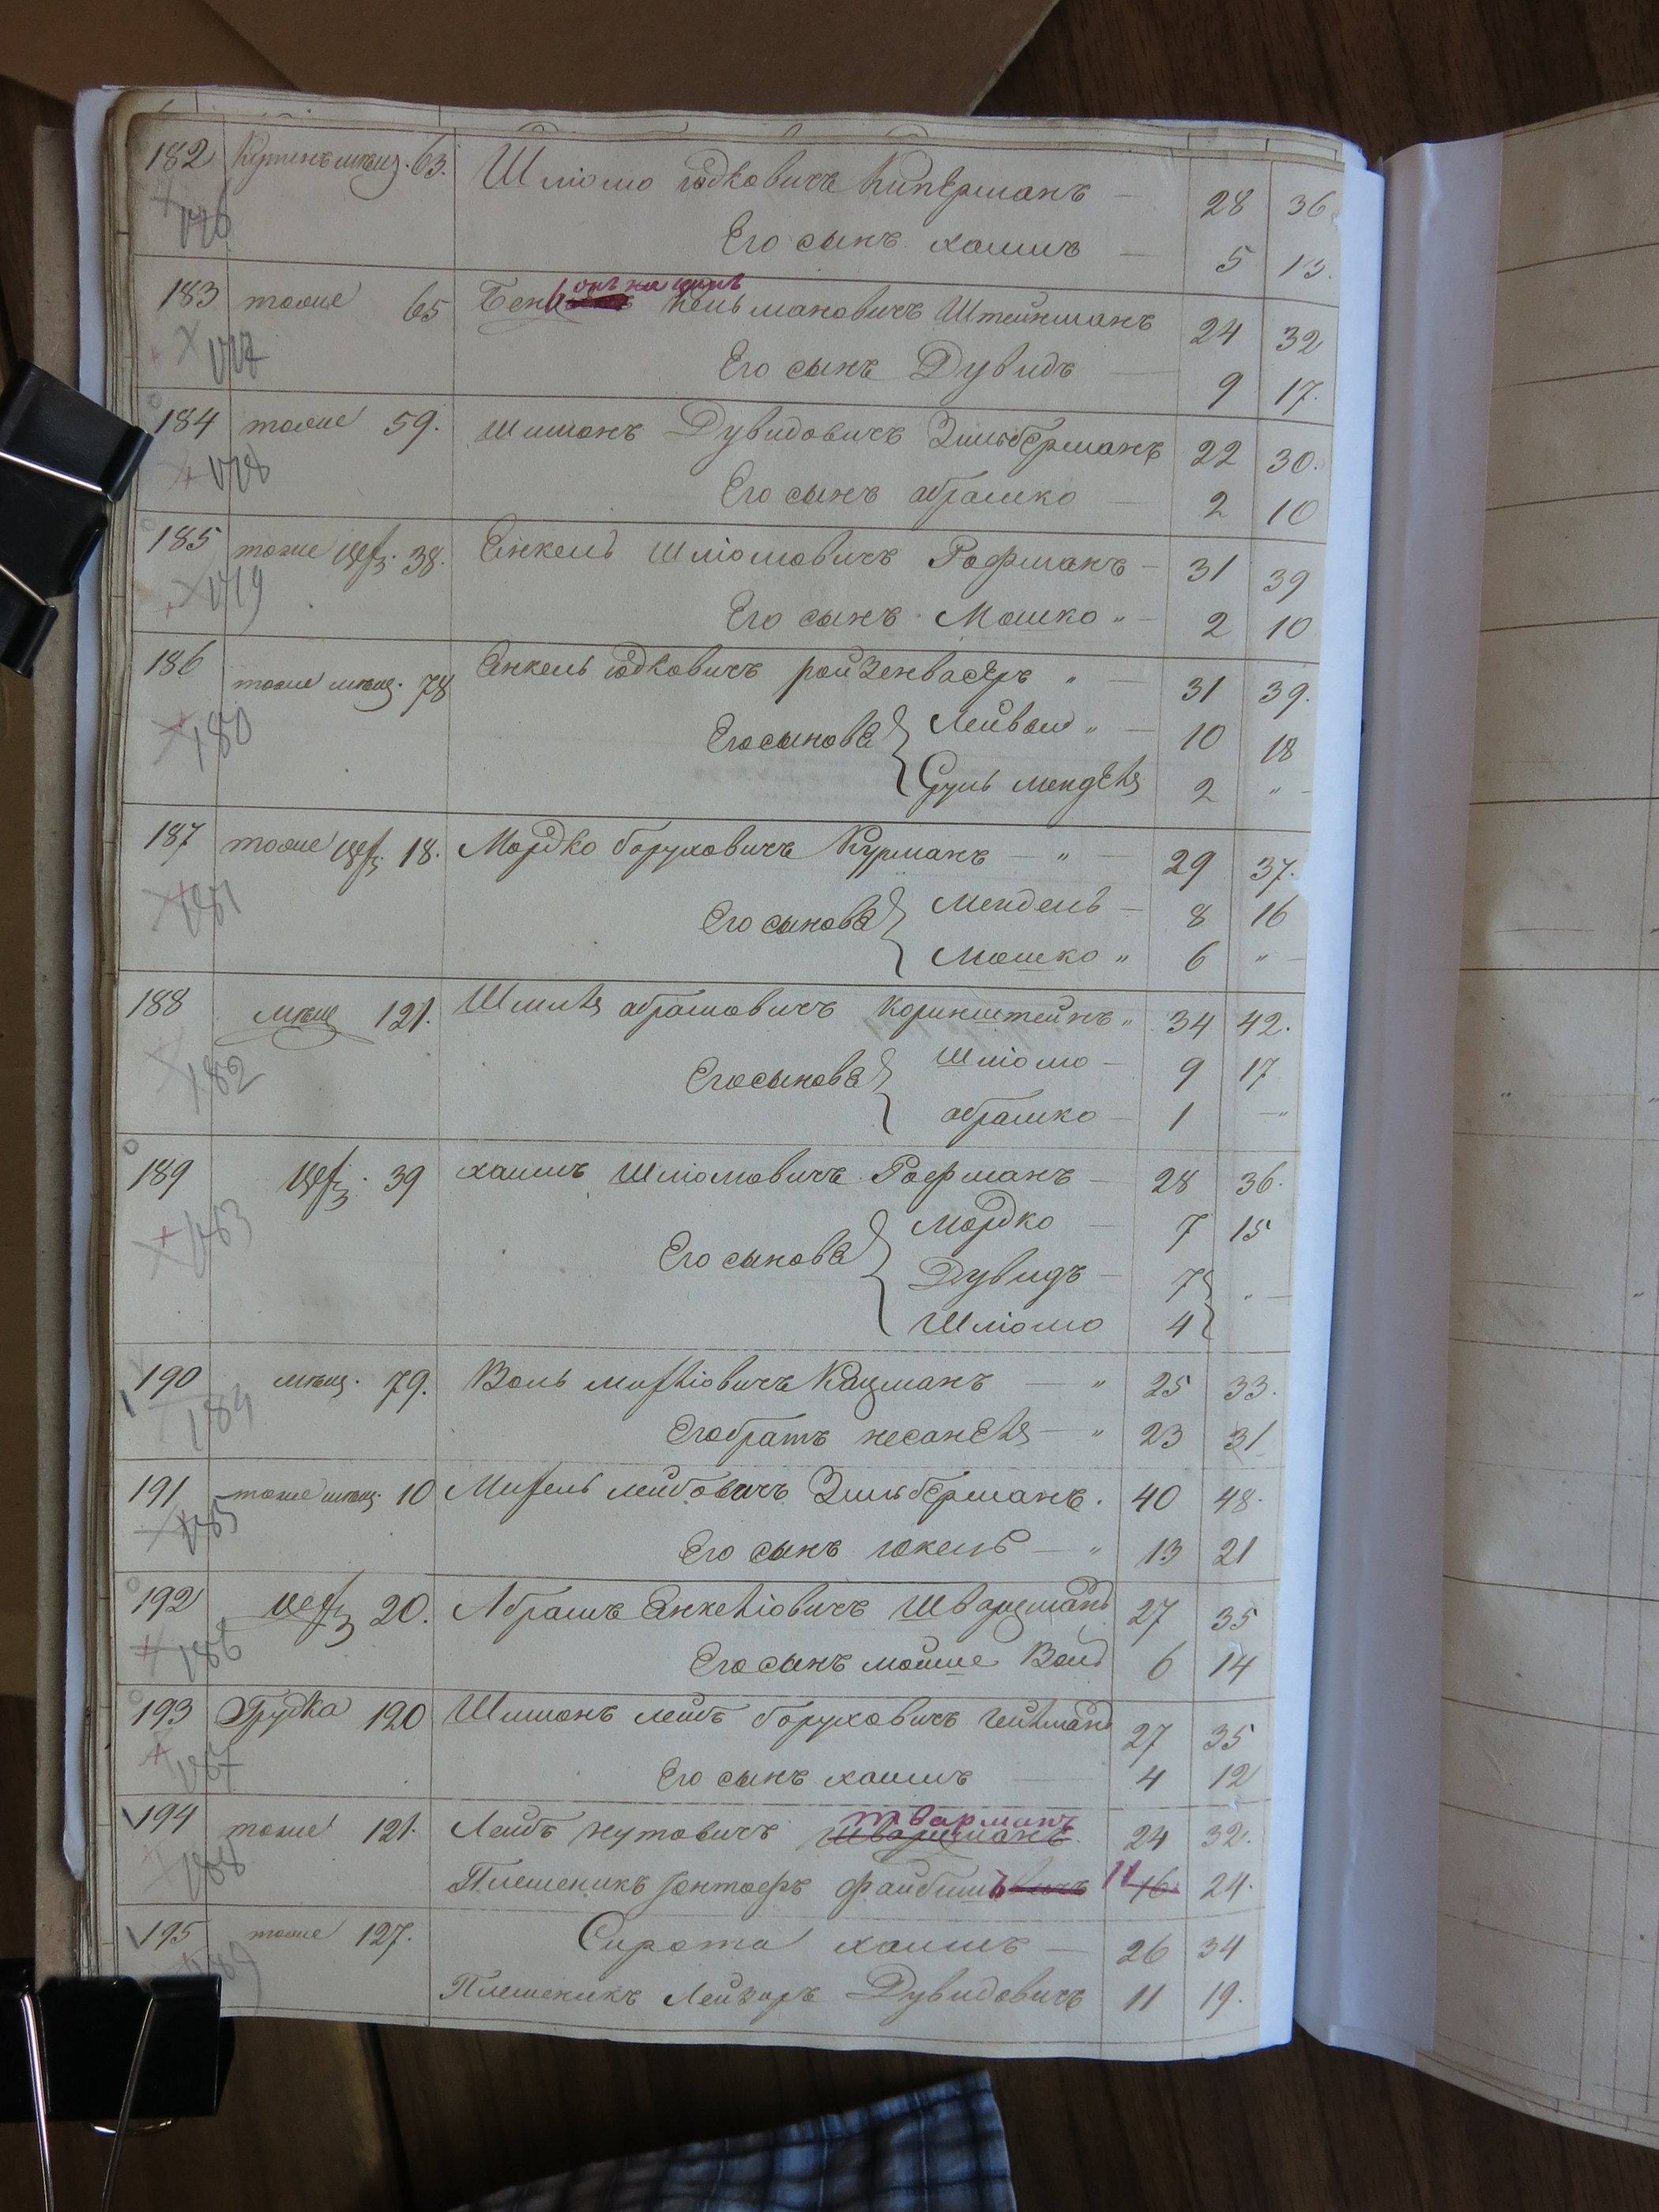 182 мѣщ. 63. Шліомо Юдковичъ Киперманъ — 28 36
176 Его сынъ Хаимъ — 5 13.
онъ же
183 тоже 65 Бен Кельмановичъ Штейнманъ 24 32
177 Его сынъ Дувидъ — 9 17.
184 тоже 59. Шимонъ Дувидовичъ Зильберманъ 22 30.
178 Его сынъ Абрамко — 2 10
185 тоже цех. 38. Янкель Шліомовичъ Рофманъ — 31 39
179 Его сынъ Мошко „ — 2 10
186 тоже мѣщ. 78 Янкель Юдковичъ Ройзенвасеръ „ — 31 39.
180 Его сыновья { Лейвош „ — 10 18
Сруль Мендель 2 „ —
187 тоже цех. 18. Мордко Боруховичъ Курманъ — „ — 29 37.
181 Его сыновья { Мендель — 8 16
Мошко „ 6 „ —
188 мѣщ 121. Шмиль Абрамовичъ Коринштейнъ „ 34 42.
182 Его сыновья { Шліомо — 9 17
Абрамко — 1 — „
189 цех. 39 Хаимъ Шліомовичъ Рофманъ — 28 36.
183 Его сыновья { Мордко — 7 15
Дувидъ — 7 } „ —
Шліомо 4
190 мѣщ. 79. Воль Кацманъ — „ 25 33.
184 Его братъ Несанель — „ 23 31
191 тоже мѣщ. 10 Лейбовичъ Зильберманъ. 40 48.
185 Его сынъ Іокель — „ 13 21
192 цех 20. Абрамъ Янкеліовичъ Шварцманъ 27 35
186 Его сынъ Мойше Вольф 6 14
193 Грудка 120 Шимонъ Лейбъ Боруховичъ 27 35
187 Его сынъ Хаимъ — 4 12
тварманъ
194 тоже 121. Лейбъ Нутовичъ Шварцманъ 24 32.
188 Племеникъ Файбиш 11 16 24.
195 тоже 127. Сирота Хаимъ — 26 34
189 Племеникъ Лейзоръ Дувидовичъ 11 19.